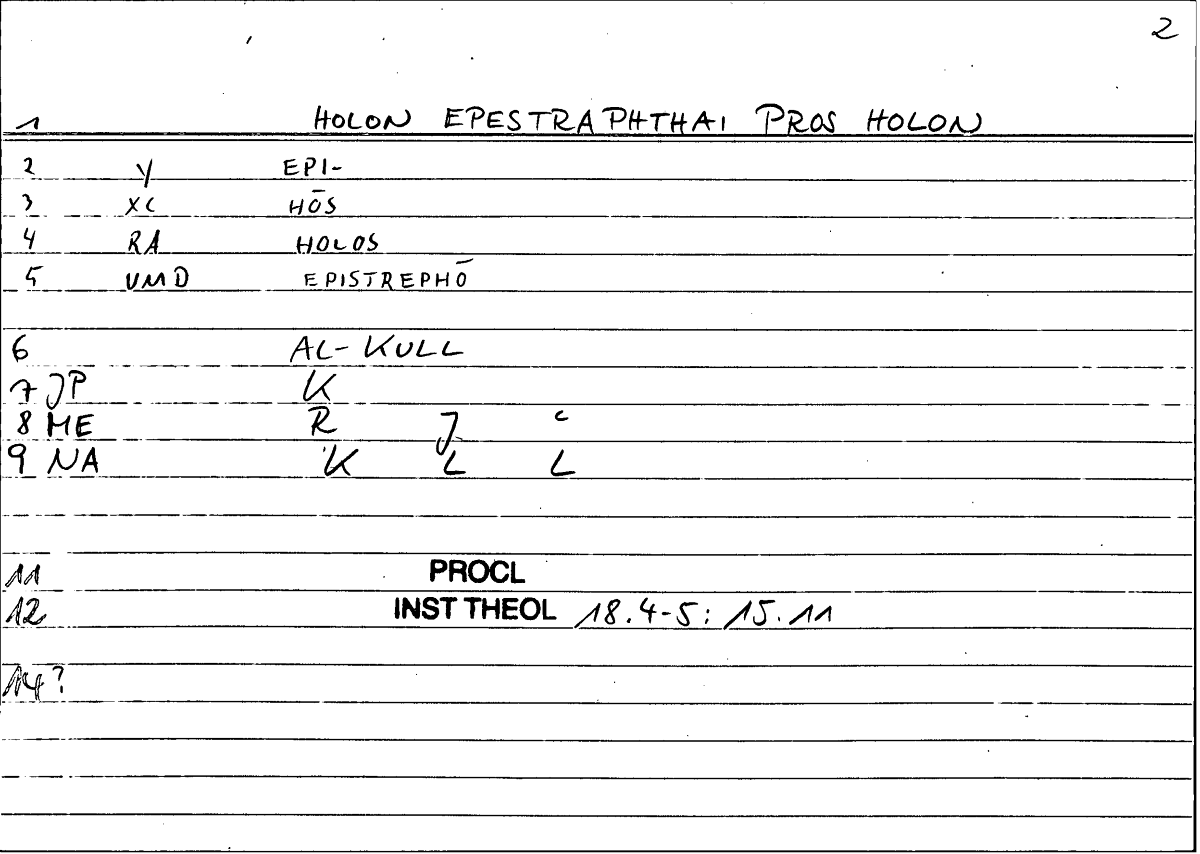 2
1 HOLON EPESTRAPHTHAI PROS HOLON
2 Y EPI-
3 XC HŌS
4 RA HOLOS
5 VMD EPISTREPHŌ
6 AL-KULL
7 JP K
8 ME R J c
9 NA K L L
11 PROCL
12 INST THEOL 18.4-5: 15.11
14?